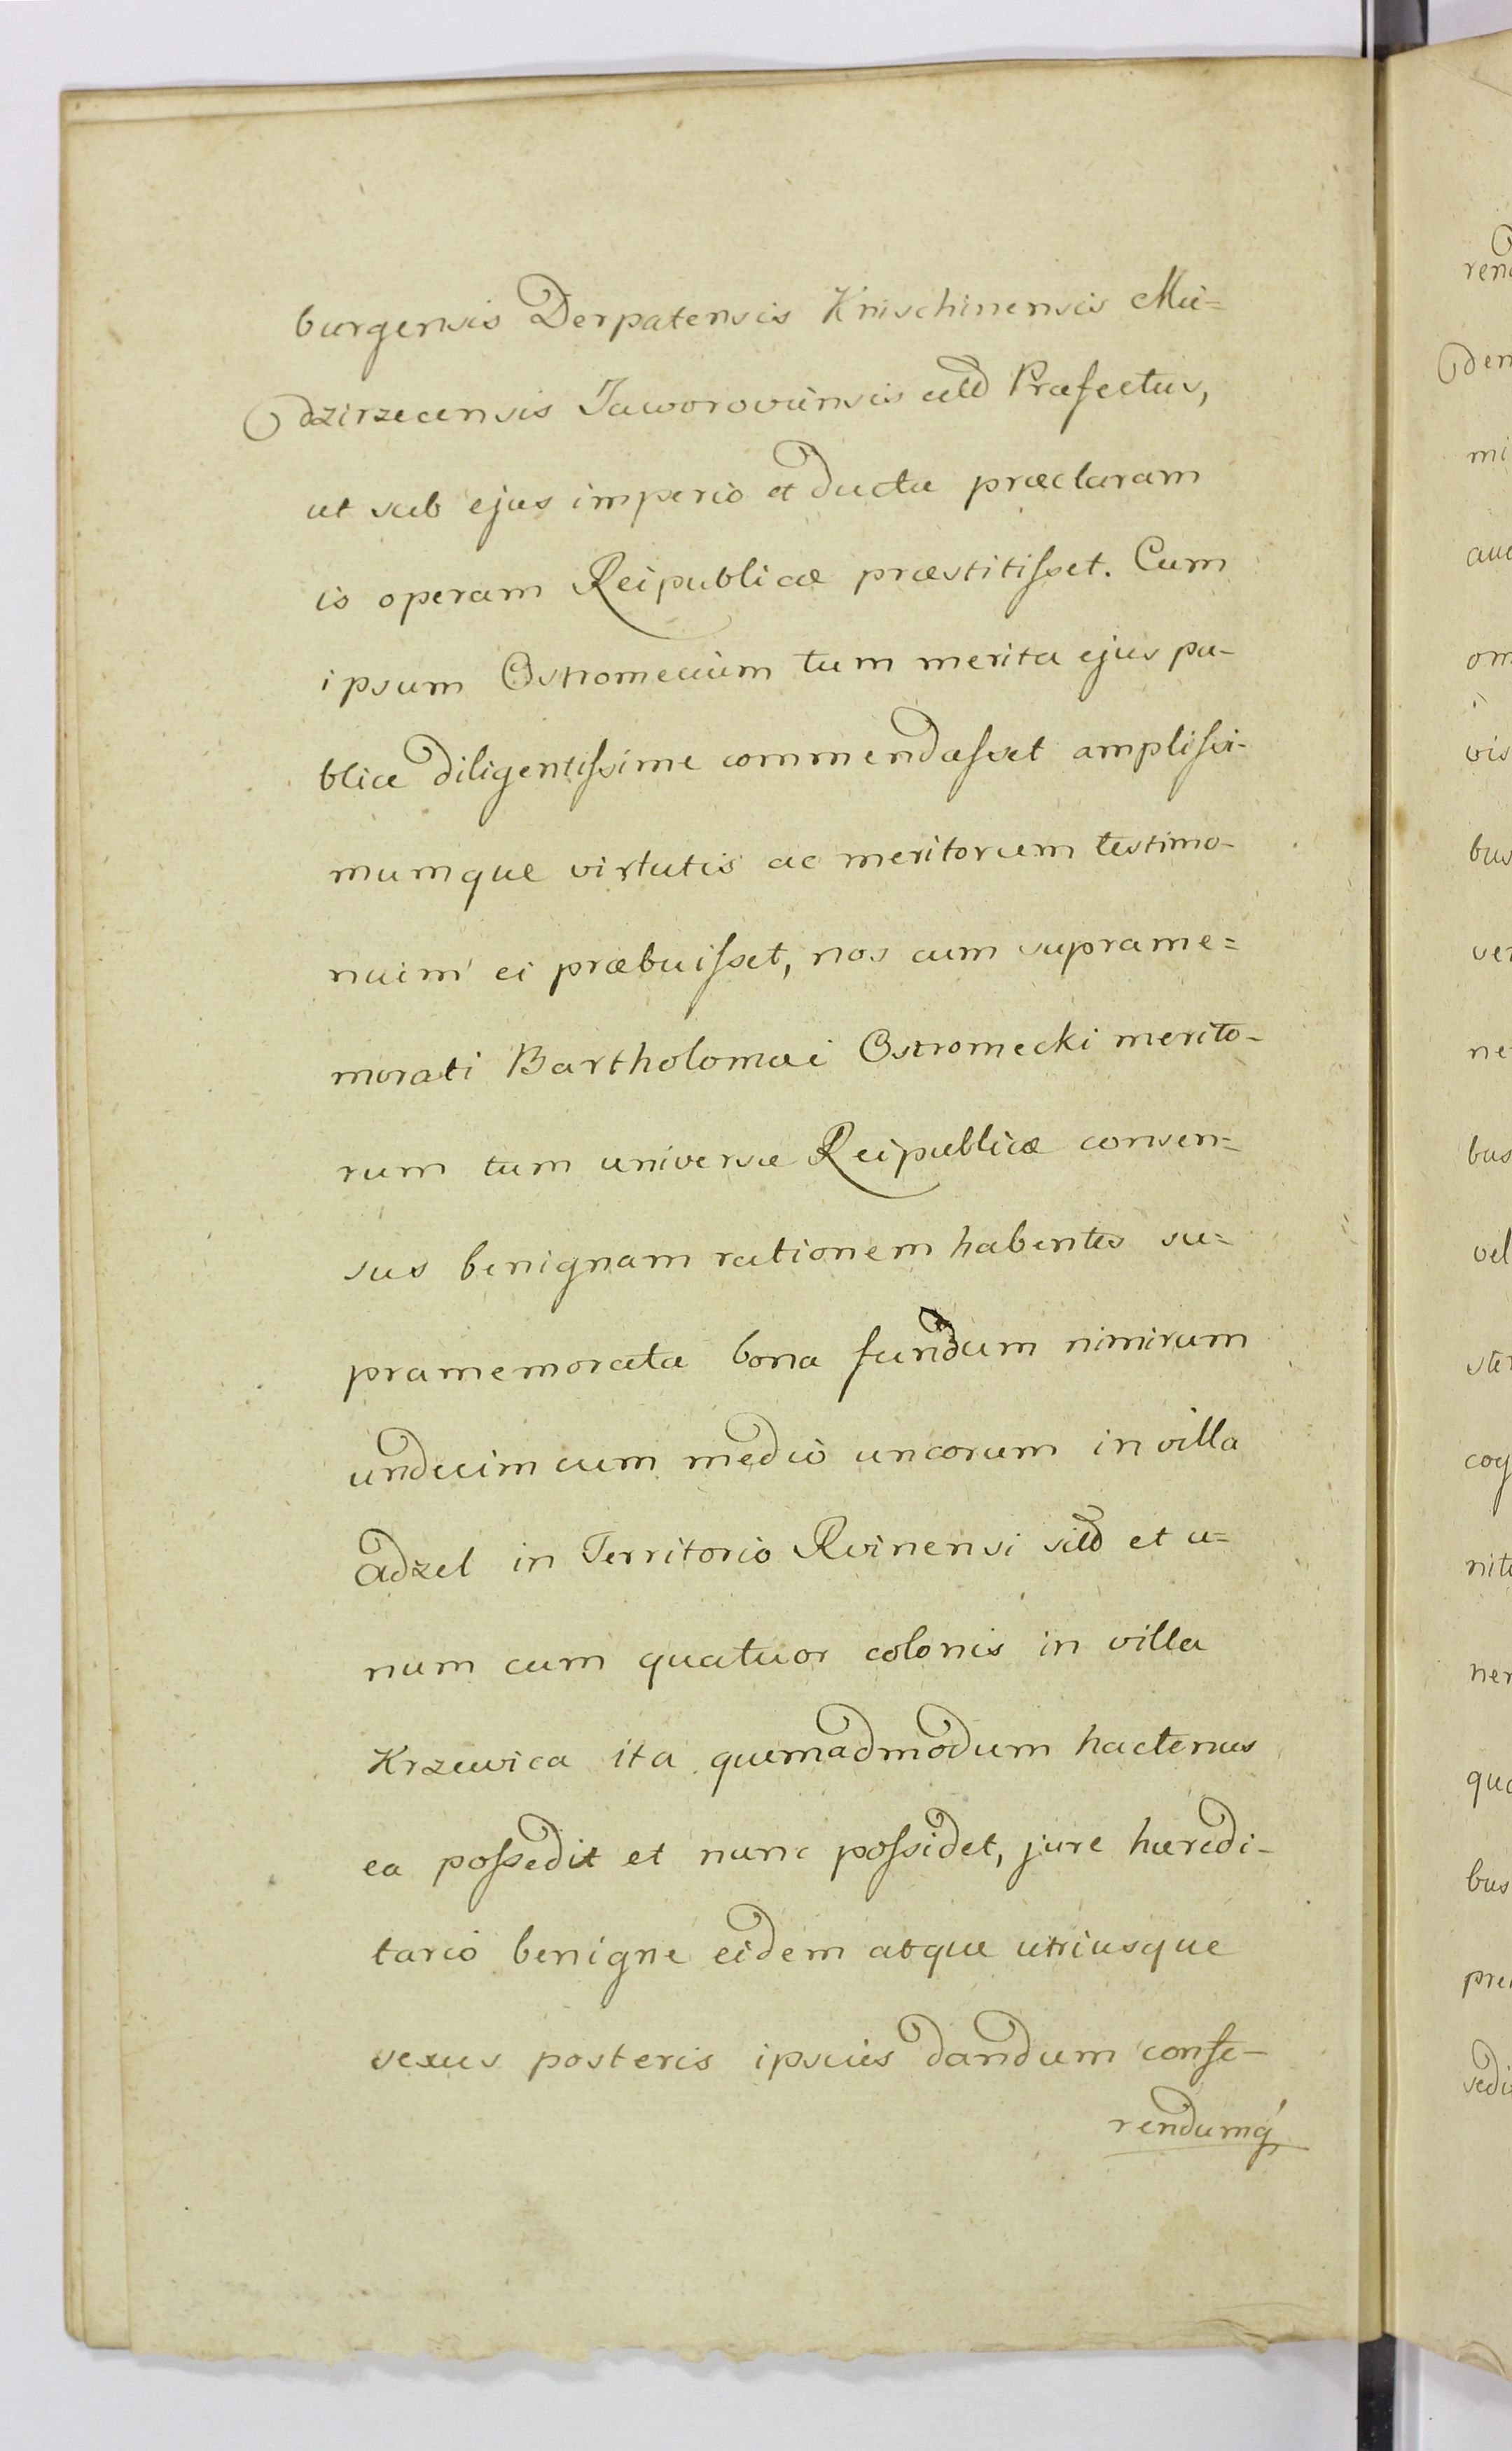 burgensis Derpatensis Knischinensis Mie=
dzirzecensis Jaworoviensis cum Præfectus,
ut sub ejus imperio et ductu præclaram
is operam Reipublicæ præstitisset. Cum
ipsum Ostromecium tum merita ejus pu-
blice diligentissime commendasset amplissi-
mumque virtutis ac meritorum testimo-
nium ei præbuisset, nos cum suprame=
morati Bartholomæi Ostromecki merito-
rum tum universæ Reipublicæ consen=
sus benignam rationem habentes su=
pramemorata bona fundum nimirum
undecim cum medio uncorum in villa
Adzel in Territorio Rvinensi et u=
num cum quatuor colonis in villa
Krzewica ita quemadmodum hactenus
ea possedit et nunc possidet, jure hæredi-
tario benigne eidem atque utriusque
sexus posteris ipsius dandum confe-
rendumq́